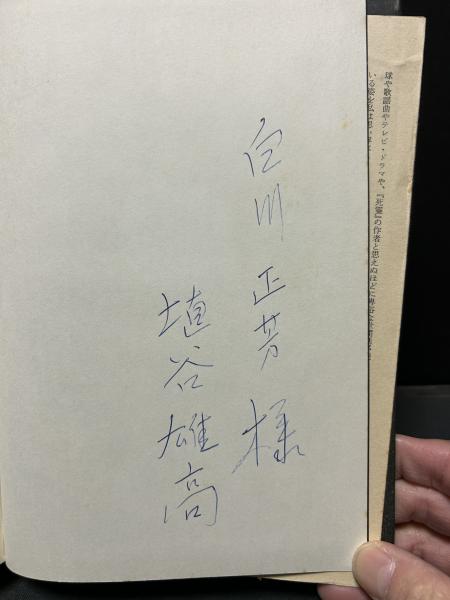 白川正芳様
埴谷雄高
球や歌謡曲やテレビ・ドラマや、『死霊』の作者と思えぬほどに
いる姿を私は思い